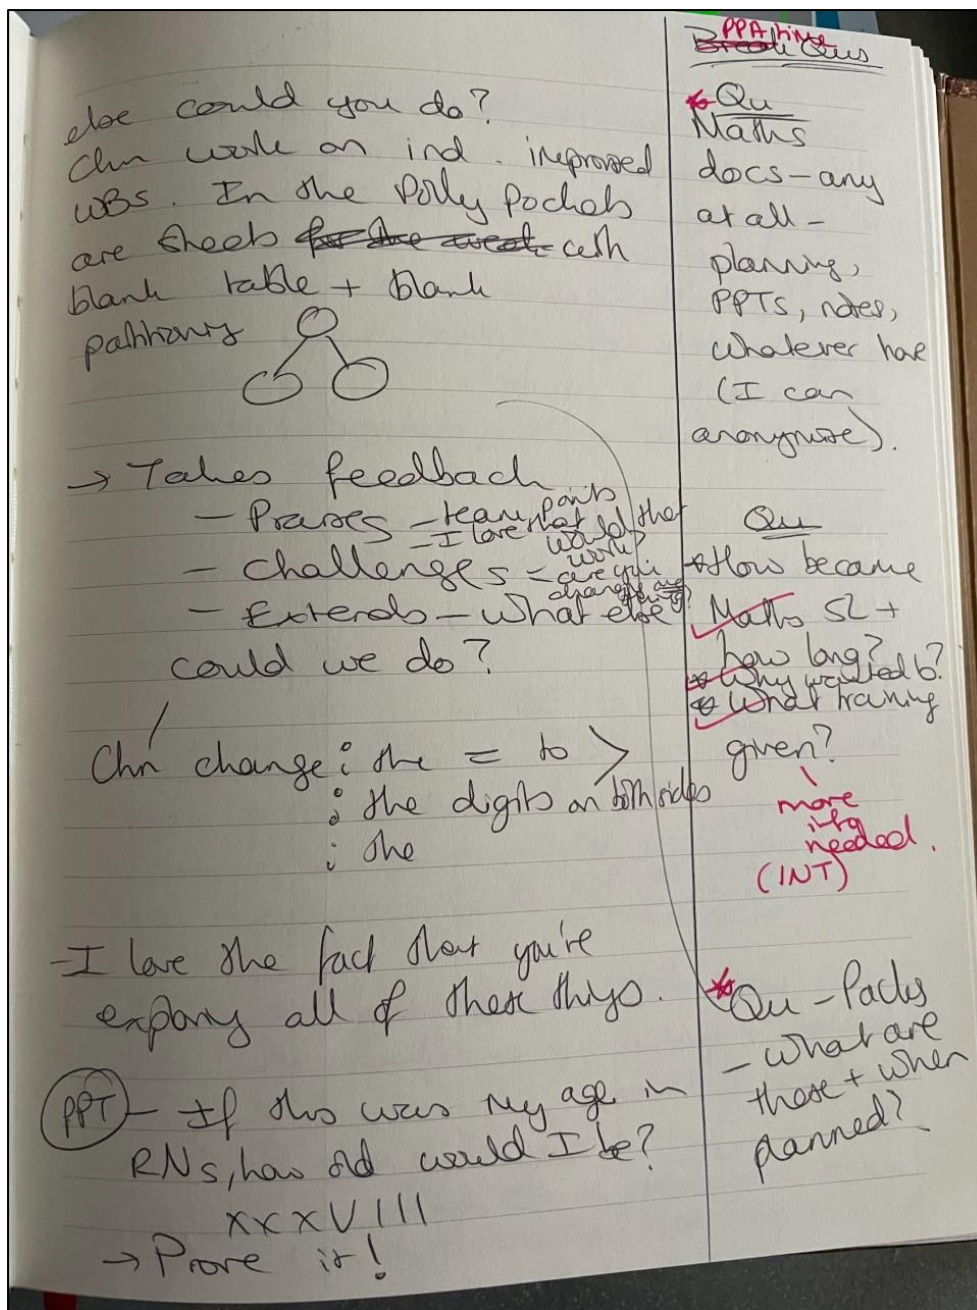 else could you do?
Chn work on ind. improved
WBS. In the Polly Pockets
are sheets for the week with
blank table + blank
pathways
→ Takes feedback
- Praises - team points
- I love that
- Challenges - would that
work?
= are you
changing any
- Extends - What else
could we do?
Chn change: the = to >
: the digits on both sides
: the
- I love the fact that you're
exploring all of these things.
PPT - If this was my age in
RNs, how old would I be?
XXXVIII
→ Prove it!
PPA time
Break Qus
* Qu
Maths
docs - any
at all -
planning,
PPTs, notes,
whatever have
(I can
anonymise).
Qu
* How became
Maths SL +
how long?
* Why wanted to?
* What training
given?
more
info
needed.
(INT)
* Qu - Packs
- what are
these + when
planned?